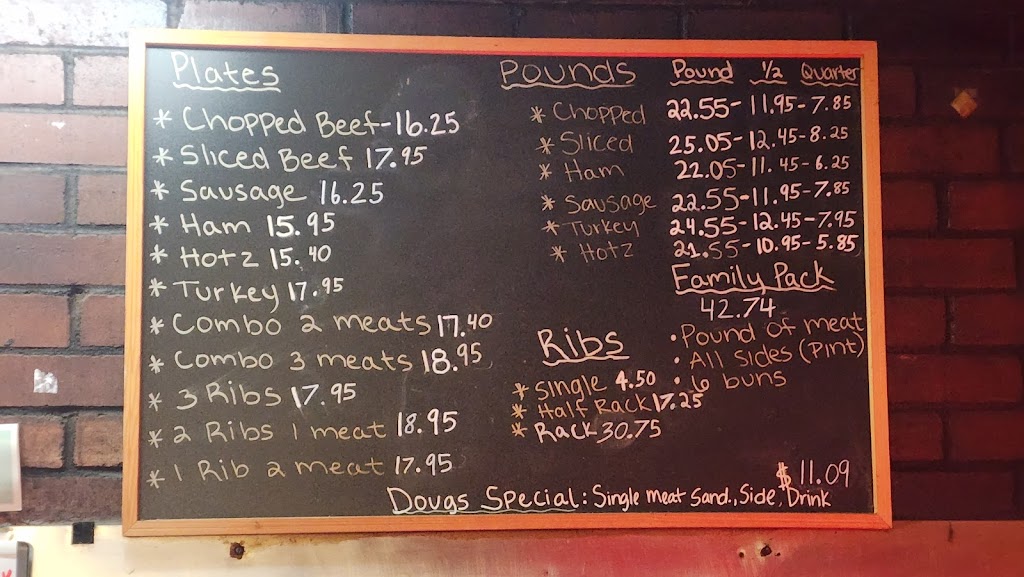 Plates
* Chopped Beef-16.25
* Sliced Beef 17.95
* Sausage 16.25
* Ham 15.95
* Hotz 15.40
* Turkey 17.95
* Combo 2 meats 17.40
* Combo 3 meats 18.95
* 3 Ribs 17.95
* 2 Ribs 1 meat 18.95
* 1 Rib 2 meat 17.95
Pounds Pound 1/2 Quarter
* Chopped 22.55-11.95-7.85
* Sliced 25.05-12.45-8.25
* Ham 22.05-11.45-6.25
* Sausage 22.55-11.95-7.85
* Turkey 24.55-12.45-7.95
* Hotz 21.55-10.95-5.85
Family Pack
42.74
• Pound of meat
• All Sides (Pint)
• 6 buns
Ribs
* Single 4.50
* Half Rack 17.25
* Rack 30.75
$11.09
Dougs Special: Single meat Sand., Side, Drink